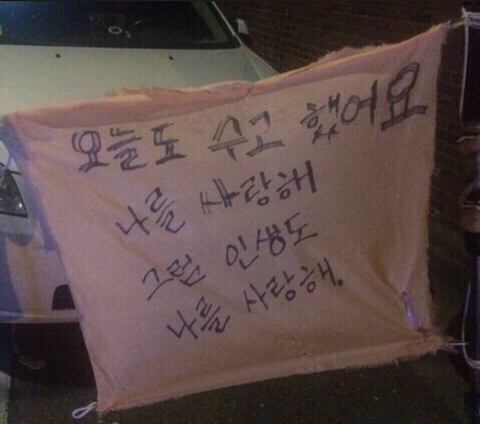 오늘도 수고 했어요
나를 새랑해
그럼 인생도
나를 사랑해.